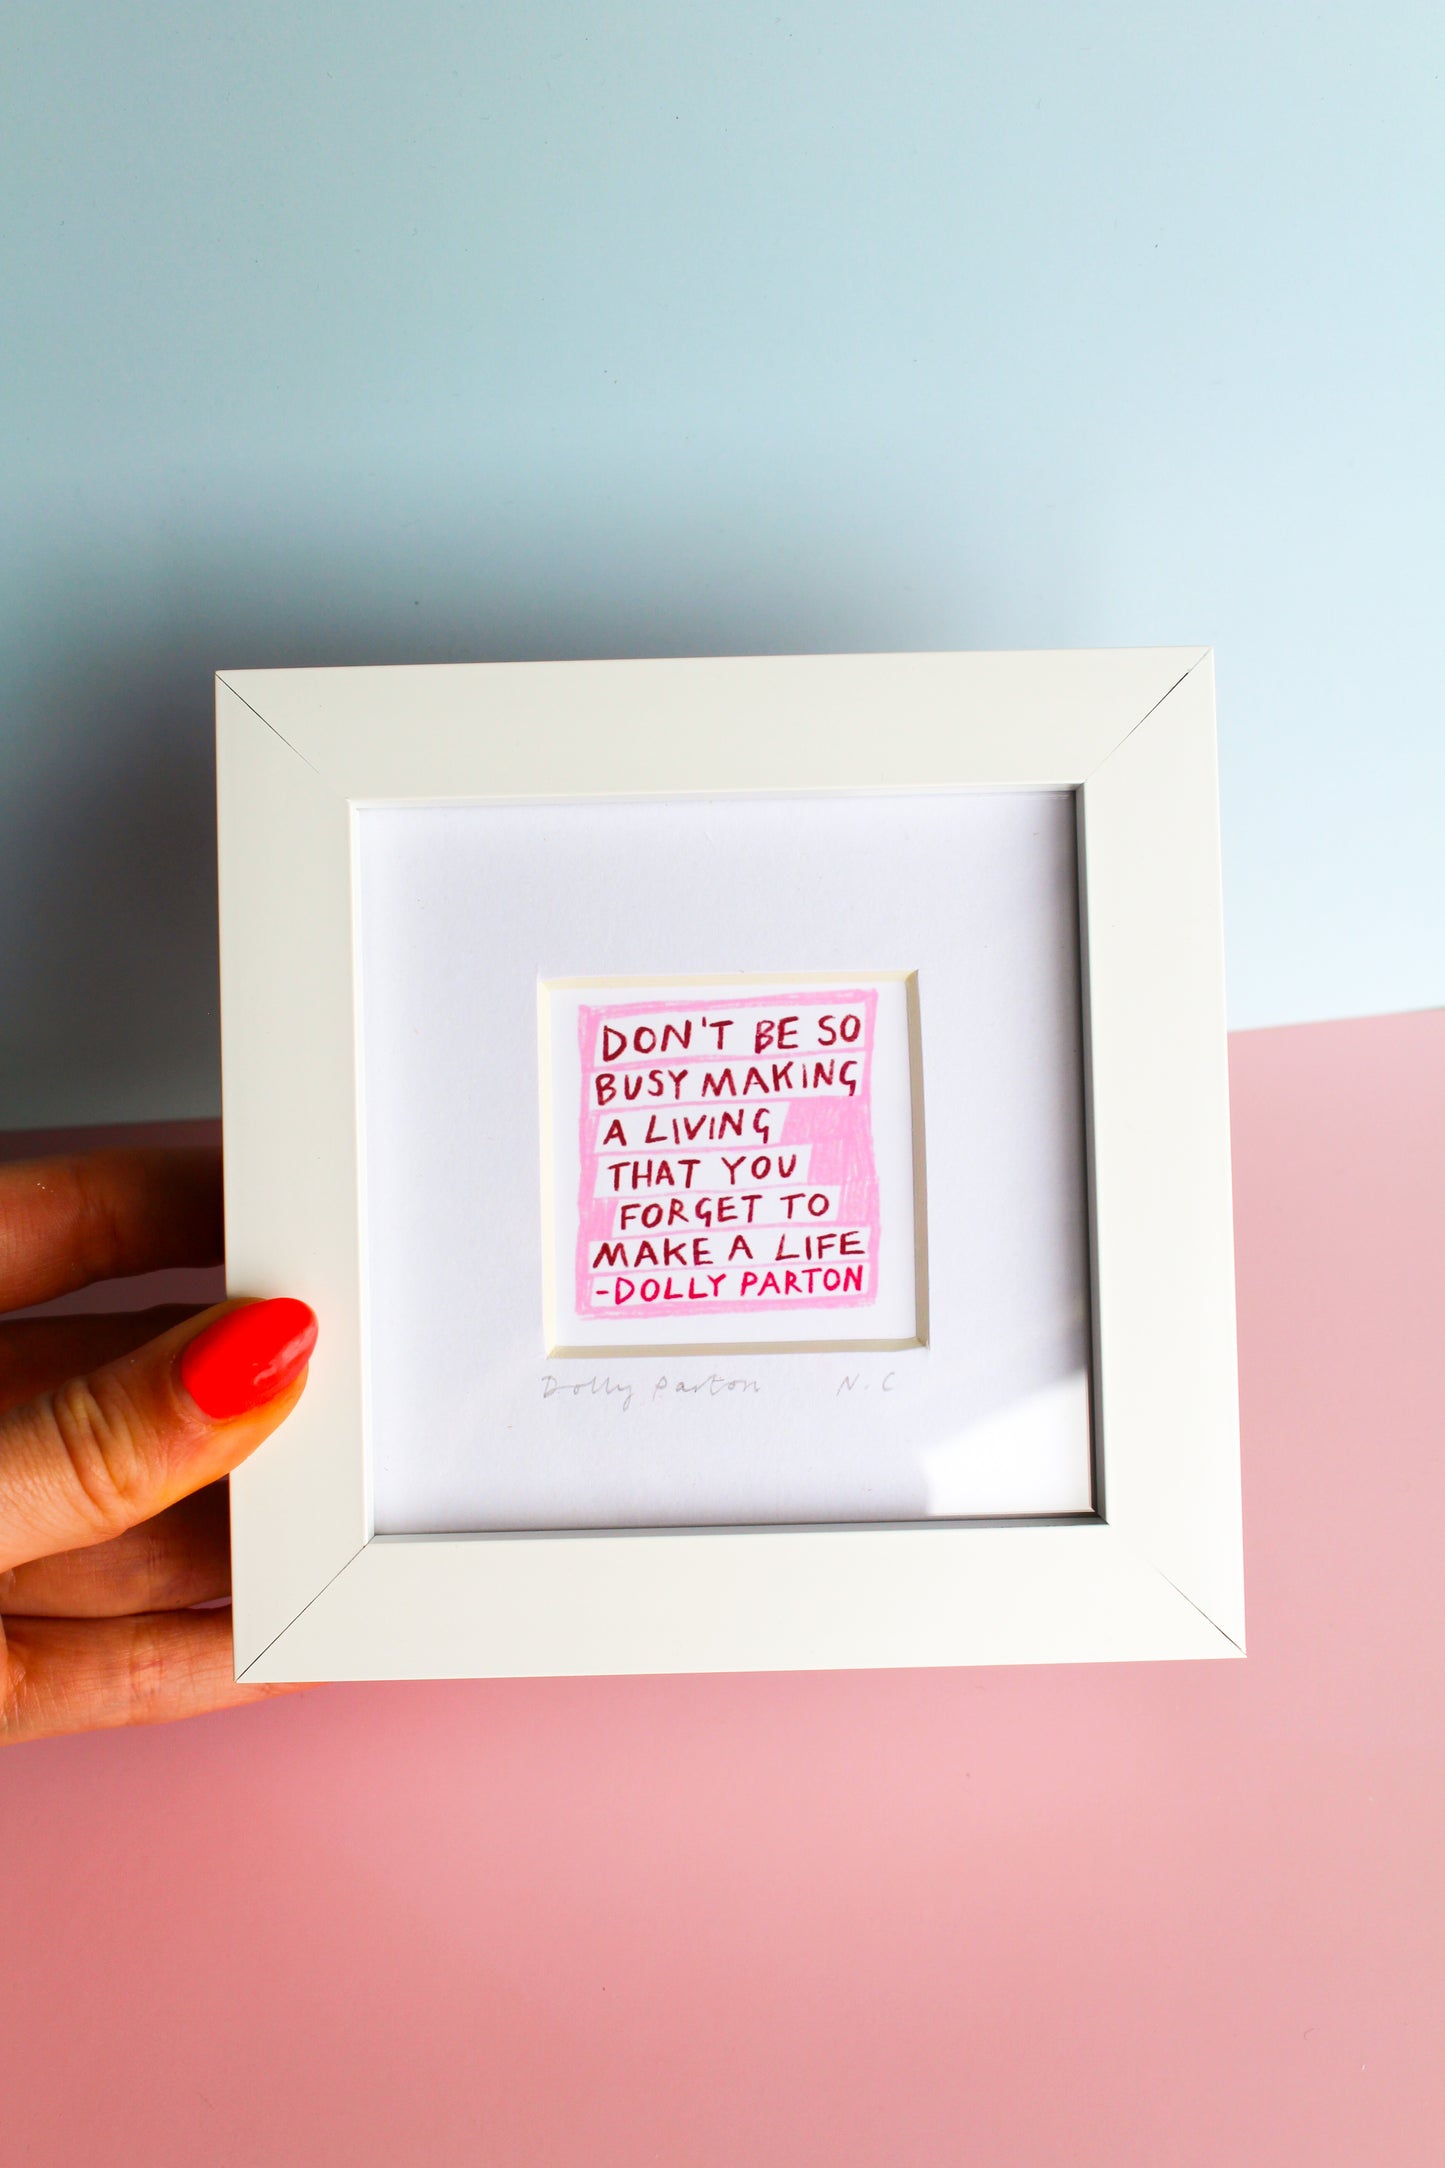 DON'T BE SO
BUSY MAKING
A LIVING
THAT YOU
FORGET TO
MAKE A LIFE
-DOLLY PARTON
Dolly Parton N.C